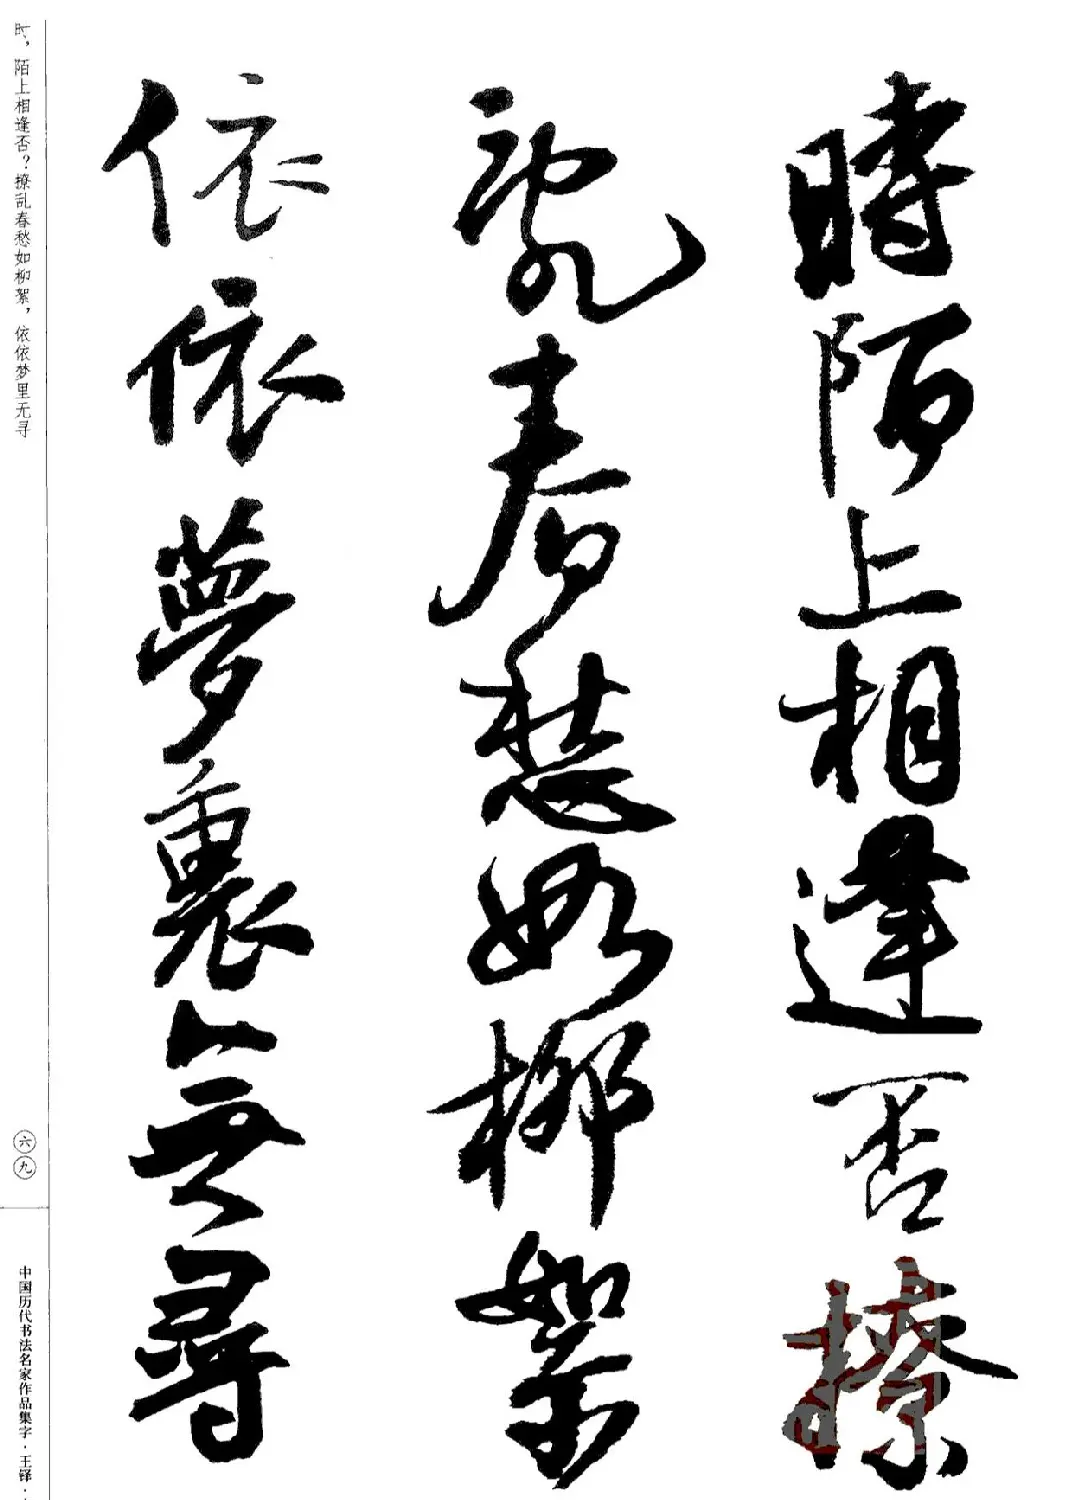 時陌上相逢否撩
亂春愁如柳絮
依依夢裏無尋
时，陌上相逢否？撩乱春愁如柳絮，依依梦里无寻
六九
中国历代书法名家作品集字·王铎·